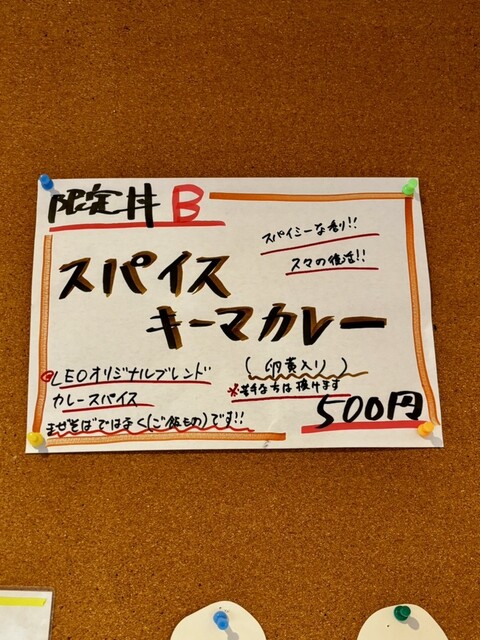 限定丼 B
スパイシーな香り!!
スタの復活!!
スパイス
キーマカレー
@LEOオリジナルブレンド
カレースパイス
(卵黄入り)
※苦手な方は抜けます
まぜそばではなく(ご飯もの)です!!
500円